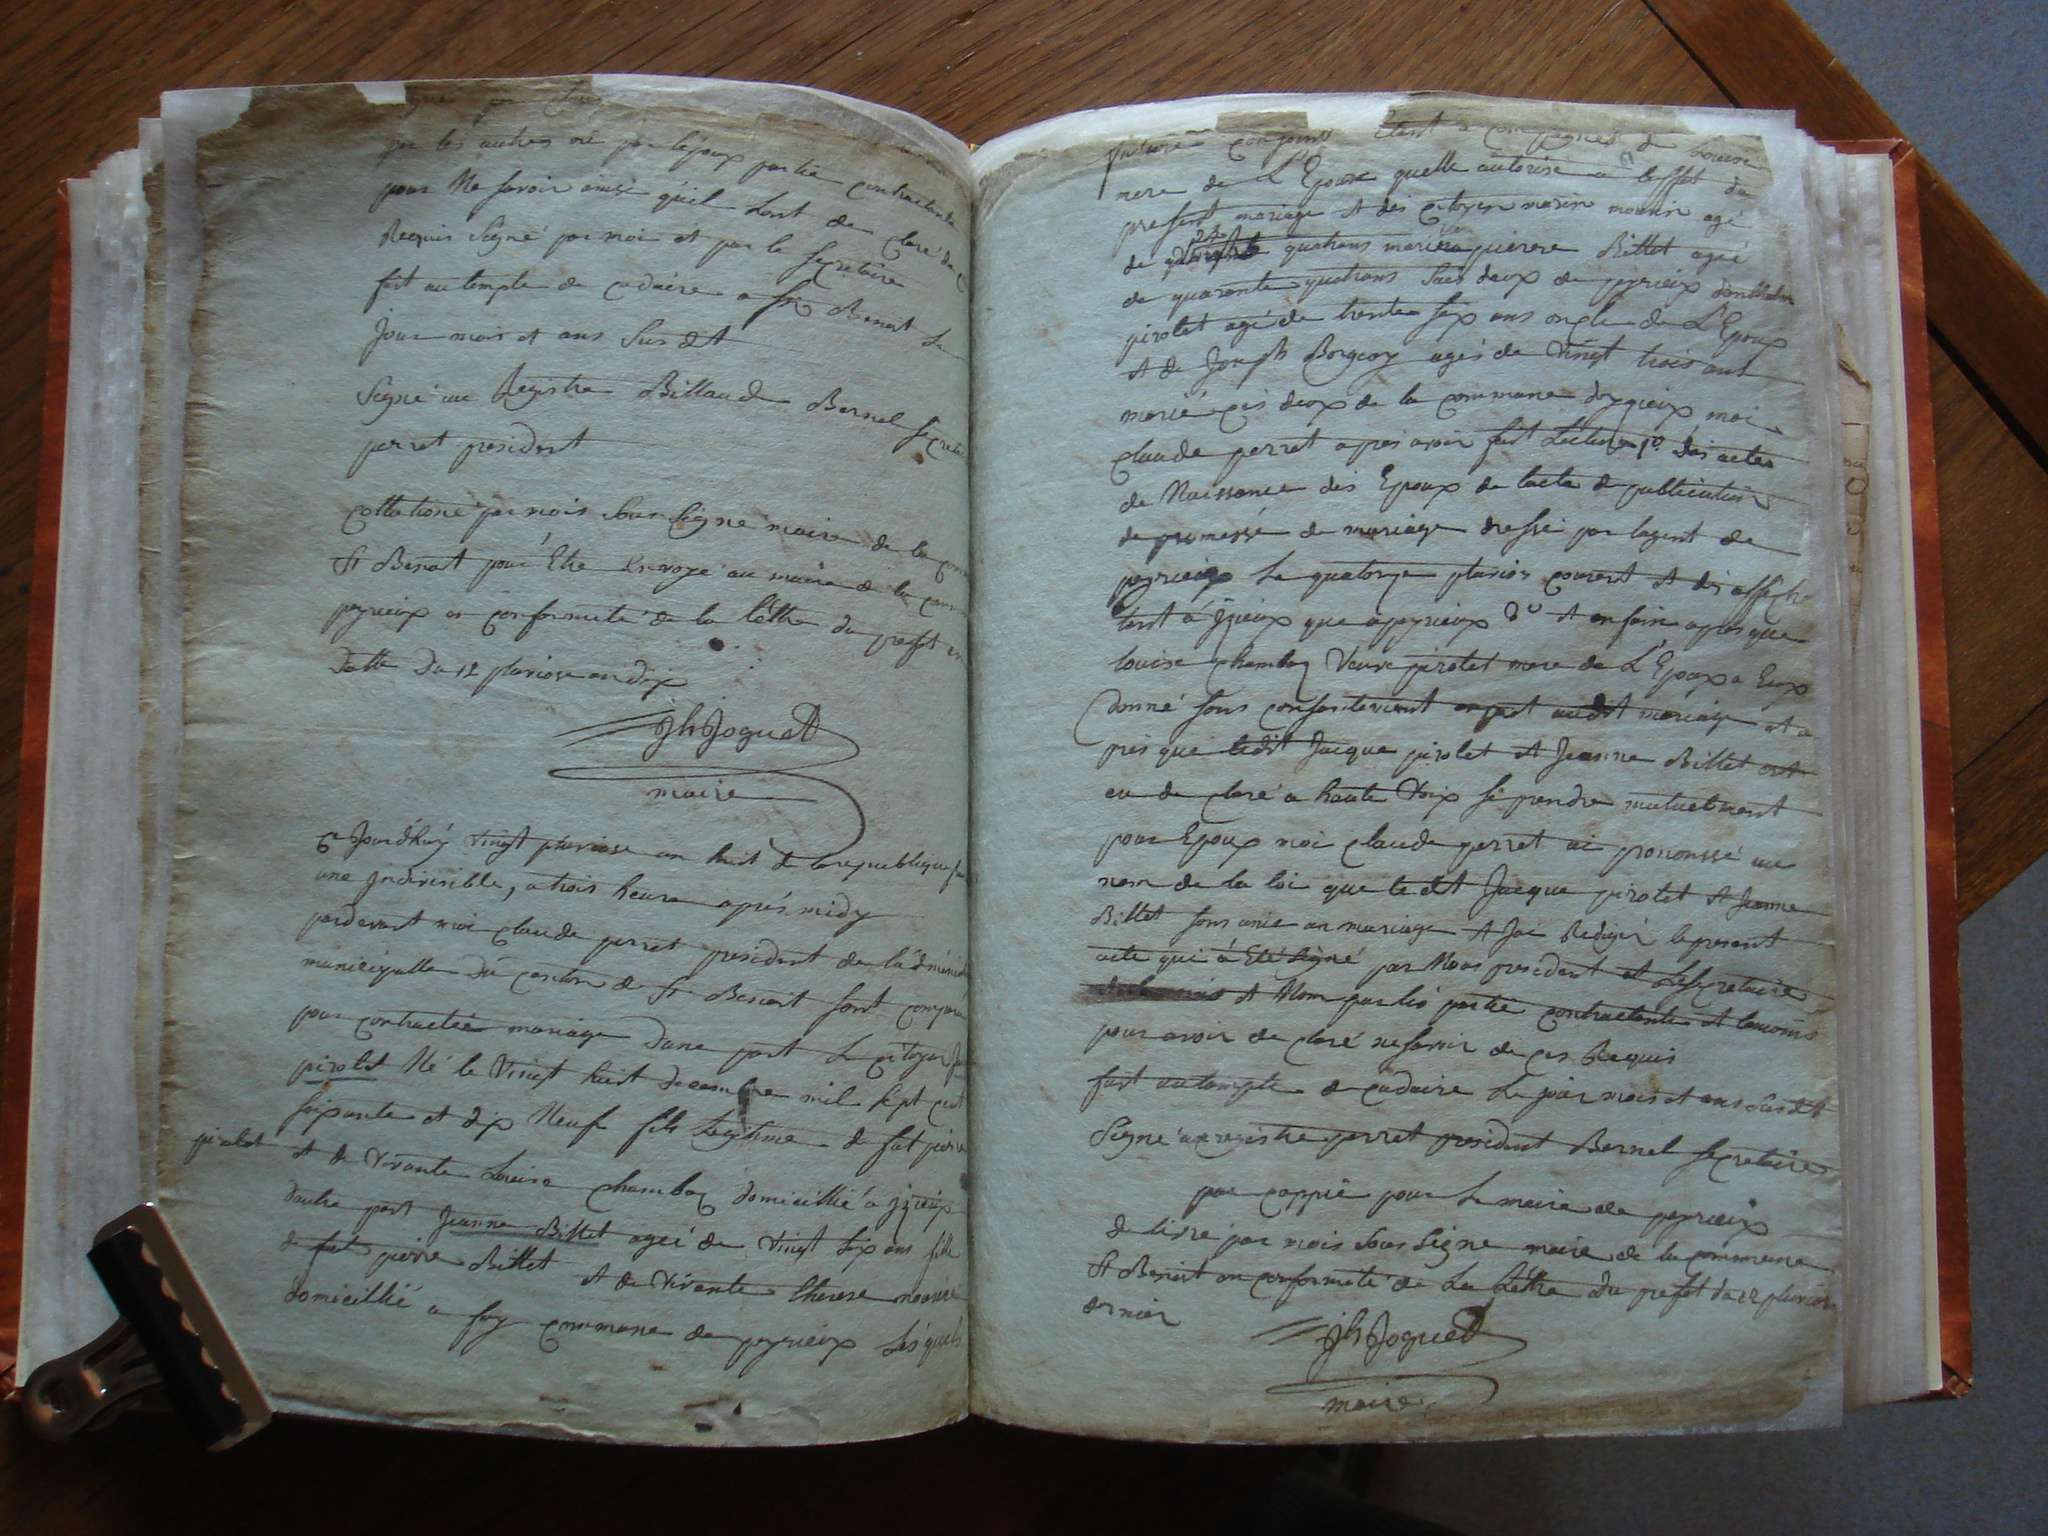 par les autres ni par lépoux partie contractante
pour Ne savoir ainsi quil lont de claré de ce
Requis Signé par moi et par le secretaire
fait au temple de cadaire a St Benoit Le
Jour mois et ans Sus dit
Signé au Registre Billaud Bernel secretaire
perret president
Collationé par mois Sous Signé maire de la com
St Benoit pour Etre Envoyé au maire de la com
peyrieux en conformité de la lettre du prefet en
Datte du 12 pluviose an dix
Jh Joguet
maire
Ce Jourdhuy vingt pluviose an huit de la republique
une Indivisible, a trois heure après midy
pardevant moi claude perret president de la
municipalle du canton de St Benoit sont comparu
pour contractée mariage Dune part Le citoyen
pirolet Né le Vingt huit decembre mil sept cent
soixante et dix Neuf fils Legitime de fut pierre
pirolet et de Vivante Louise Chambaz domicillié a Izieux
dautre part Jeanne Billet ageé de Vingt six ans fille
de fut pierre Billet et de Vivante therese
domicillié a foy commune de peyrieux Lésquels
future conjoint étant a compagnes de Louise
mere de L'Epoux quelle autorise a leffet du
present mariage et des citoyen marin mounin agé
de quatrans marié pierre Billet ageé
de quarante quatrans tous deux de peyrieux
pirolet agé de trente six ans oncle de L'Epoux
et de Joseph agés de vingt trois ans
marié ces deux de la commune dizieux moi
claude perret apres avoir fait Lecture 1o des actes
de Naissance des Epoux de lacte de publication
de promesse de mariage dressé par lagent de
peyrieux Le quatorze pluvios courent et des affich
tant á Izieux que a peyrieux 2o et enfin apres que
louise chambaz Veuve pirolet mere de L'Epoux a Eux
Donné sons consentement audit mariage et a
près que ledit Jacque pirolet et Jeanne Billet ont
eu de claré a haute Voix se prendre mutuelment
pour Epoux moi claude perret ai prononssé au
nom de la loi que le dit Jacque pirolet et Jeanne
Billet sons unie en mariage et Jai Redigér le present
acte qui á Eté Signé par Nous president et Le Secretaire
et Non par les partie contractante et temoins
pour avoir de claré ne savoir de ces Requis
fait au temple de cadaire Le jour mois et ans Sus dit
Signé au registre perret president Bernel secretaire
par coppie pour Le maire de peyrieux
de livré par mois sous Signé maire de la commune
St Benoit en conformité de La lettre du prefet du 12 pluviose
dernier
Jh Joguet
maire